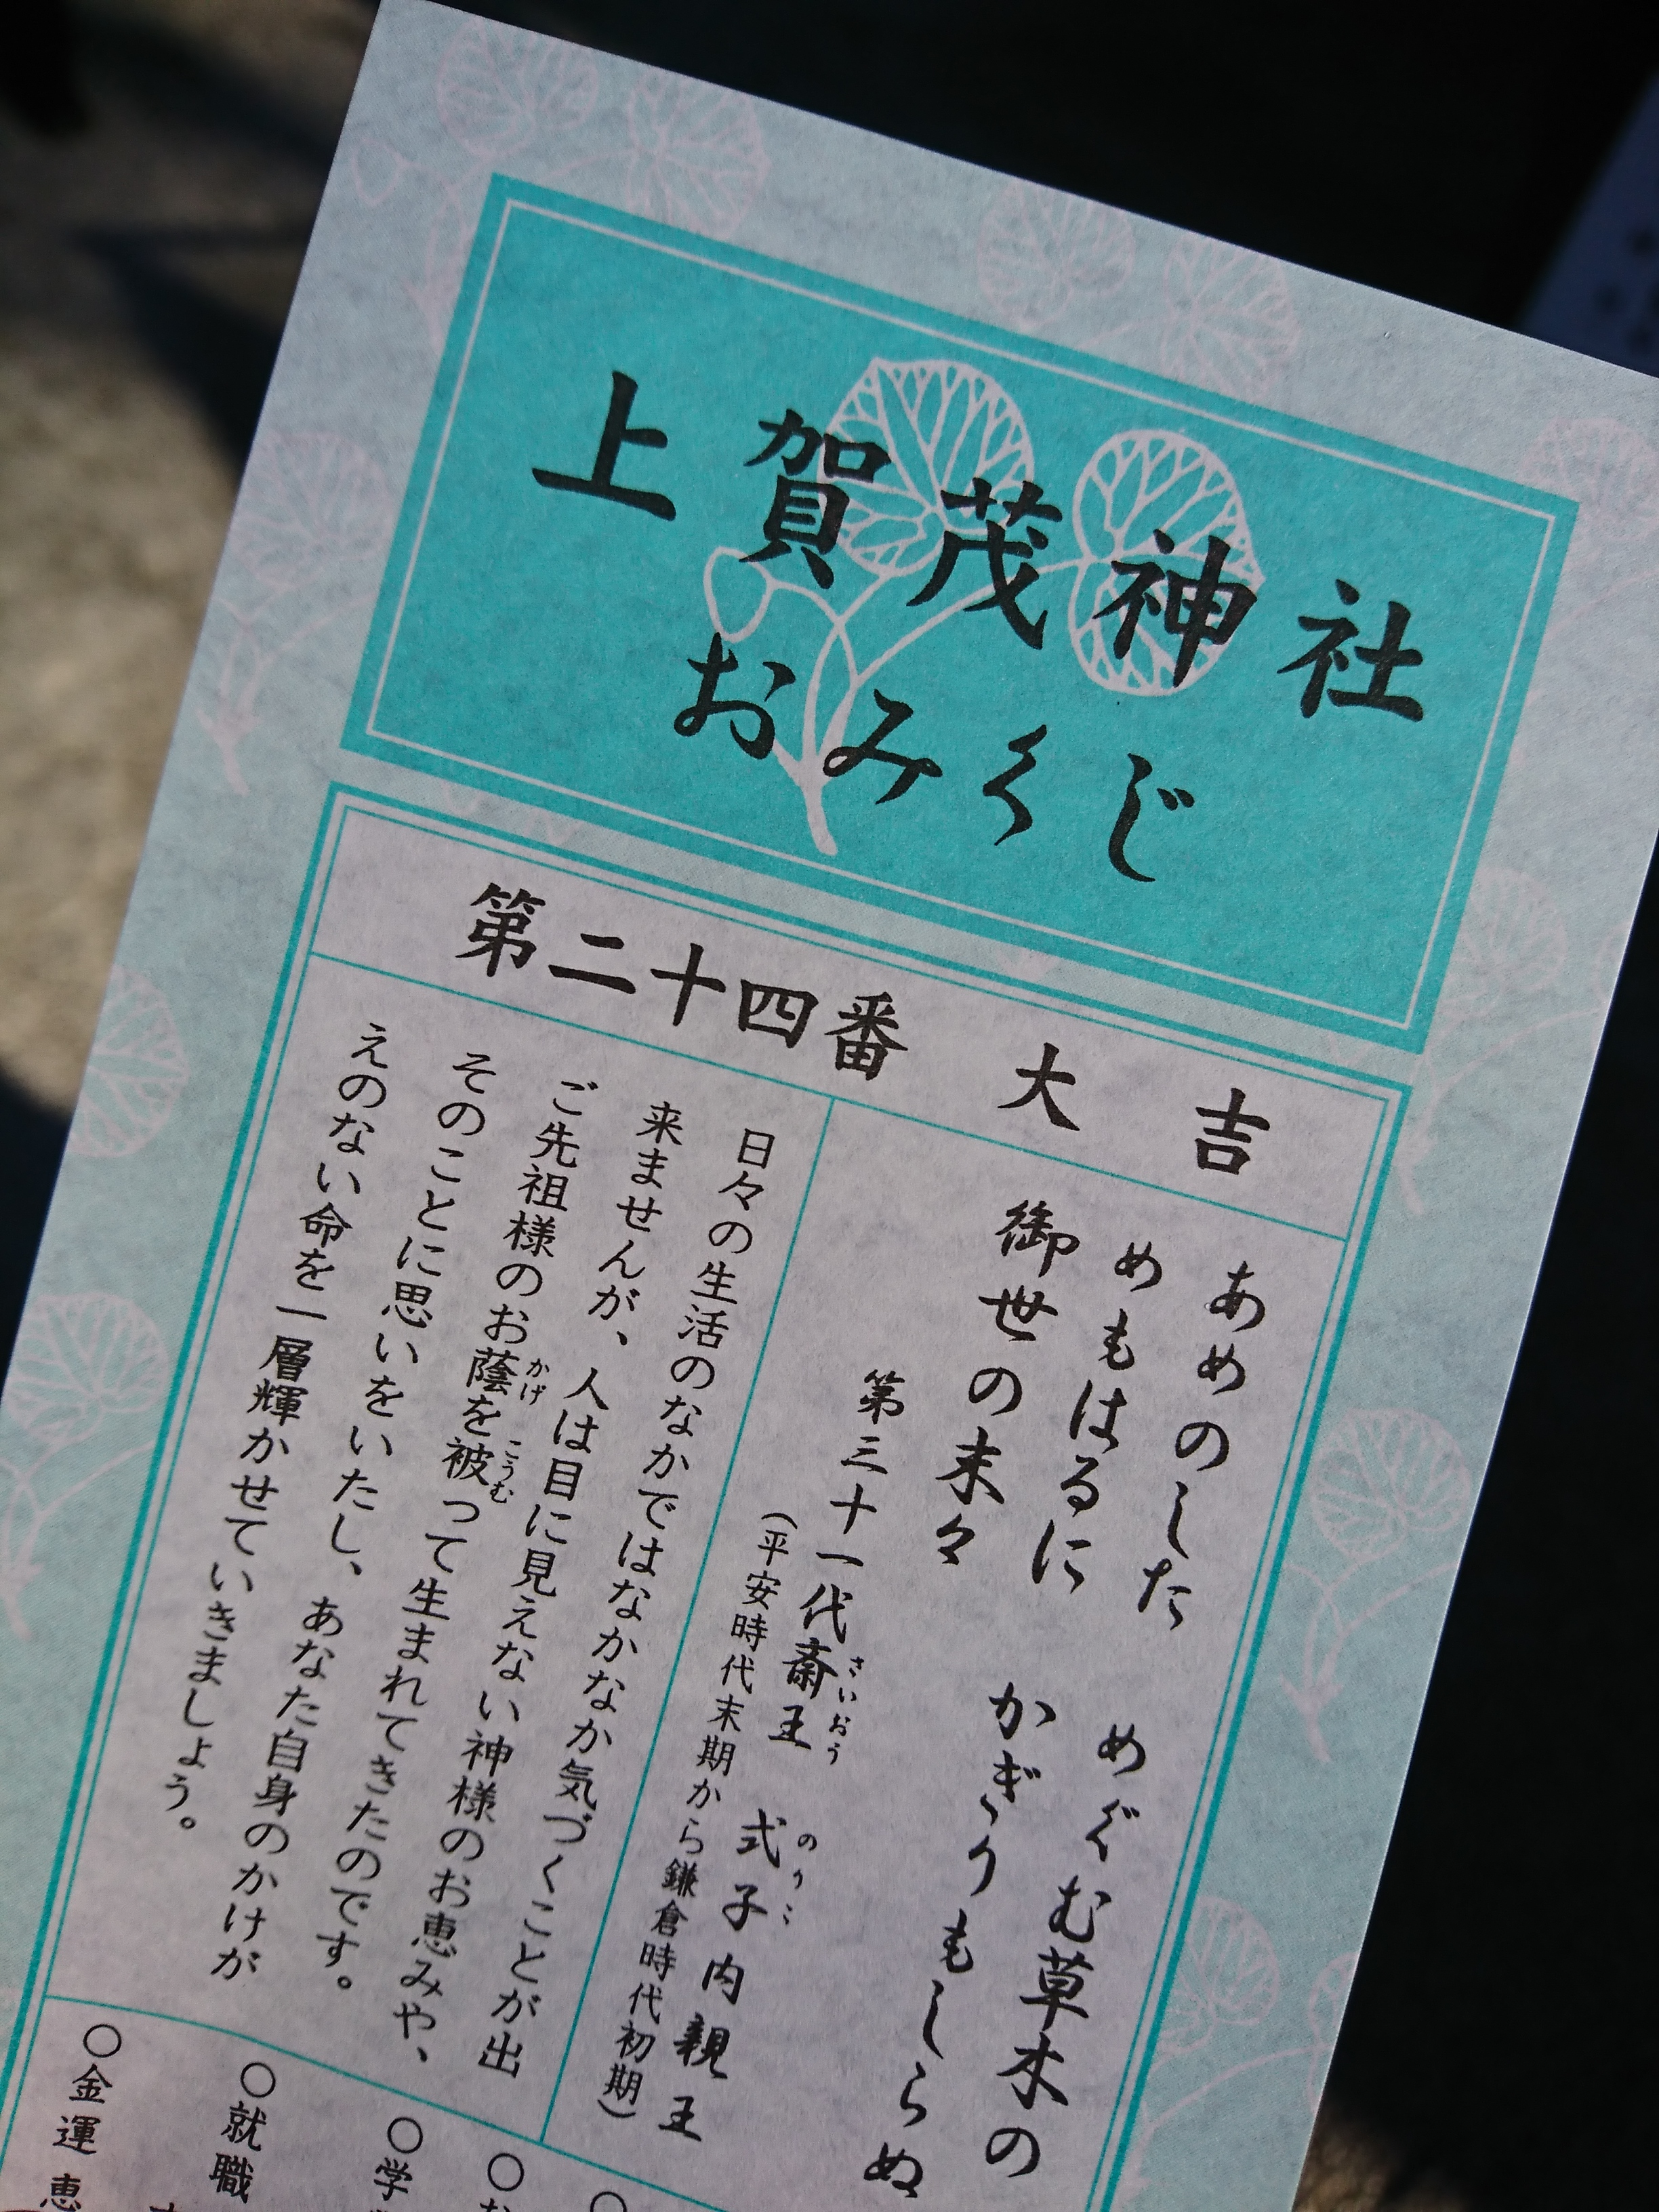 上賀茂神社
おみくじ
第二十四番 大吉
あめのした めぐむ草木の
めもはるに かぎりもしらぬ
御世の末々
第三十一代斎王 式子内親王
さいおう のりこ
(平安時代末期から鎌倉時代初期)
日々の生活のなかではなかなか気づくことが出
来ませんが、人は目に見えない神様のお恵みや、
ご先祖様のお蔭を被って生まれてきたのです。
かげ こうむ
そのことに思いをいたし、あなた自身のかけが
えのない命を一層輝かせていきましょう。
○
○
○学
○就職
○金運 恵